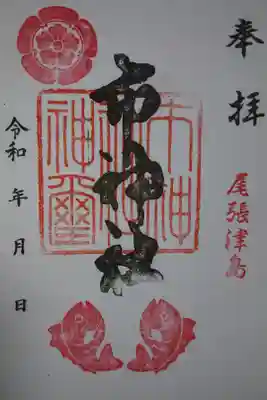 奉拝
尾張津島
市神社
市神社神璽
令和 年 月 日